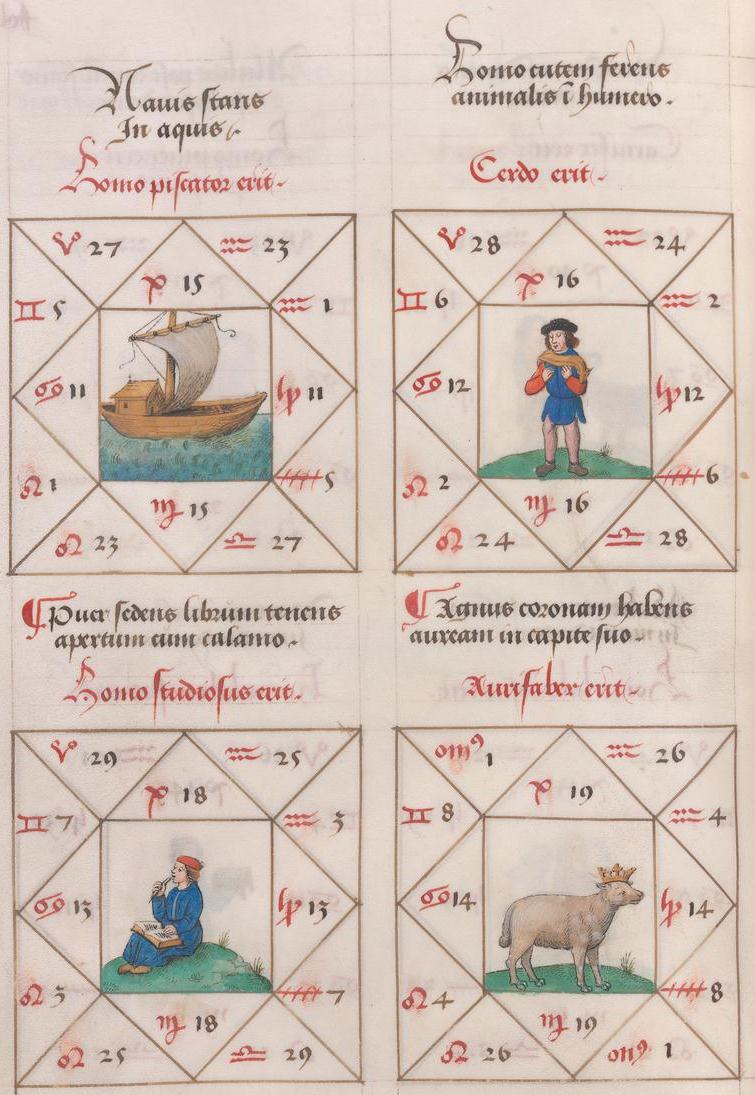 Navis stans
In aquis.
Homo piscator erit.
♈ 27
♒ 23
♓ 15
♊ 5
♒ 1
♋ 11
♑ 11
♌ 1
♐ 5
♍ 15
♌ 23
♎ 27
Homo cutem ferens
animalis ī humero.
Cerdo erit.
♈ 28
♒ 24
♓ 16
♊ 6
♒ 2
♋ 12
♑ 12
♌ 2
♐ 6
♍ 16
♌ 24
♎ 28
Puer sedens librum tenens
apertum cum calamo.
Homo studiosus erit.
♈ 29
♒ 25
♓ 18
♊ 7
♒ 3
♋ 13
♑ 13
♌ 3
♐ 7
♍ 18
♌ 25
♎ 29
Agnus coronam habens
auream in capite suo.
Aurifaber erit.
1
♒ 26
♓ 19
♊ 8
♒ 4
♋ 14
♑ 14
♌ 4
♐ 8
♍ 19
♌ 26
1